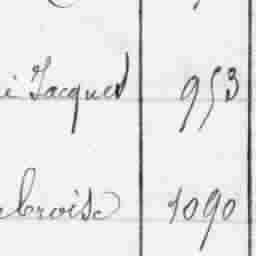 i Jacques 953
ebroise 1090